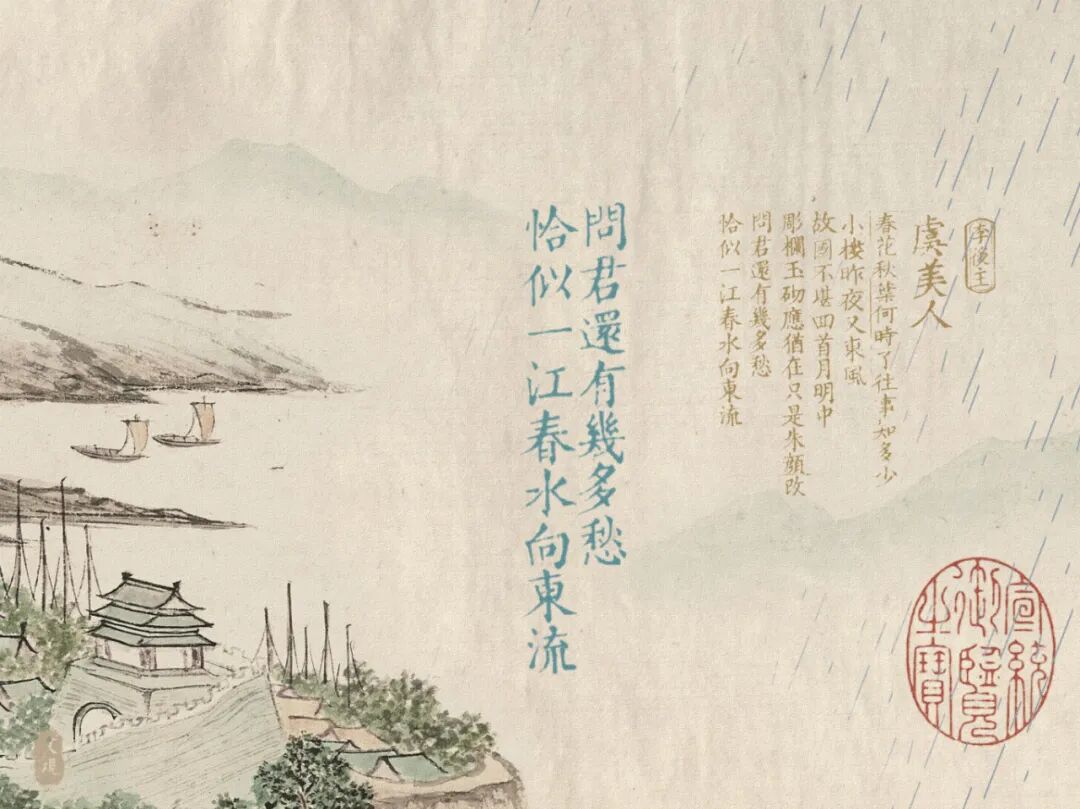 李後主
虞美人
春花秋葉何時了往事知多少
小樓昨夜又東風
故國不堪回首月明中
彫欄玉砌應猶在只是朱顏改
問君還有幾多愁
恰似一江春水向東流
問君還有幾多愁
恰似一江春水向東流
宣統
御覽
之寶